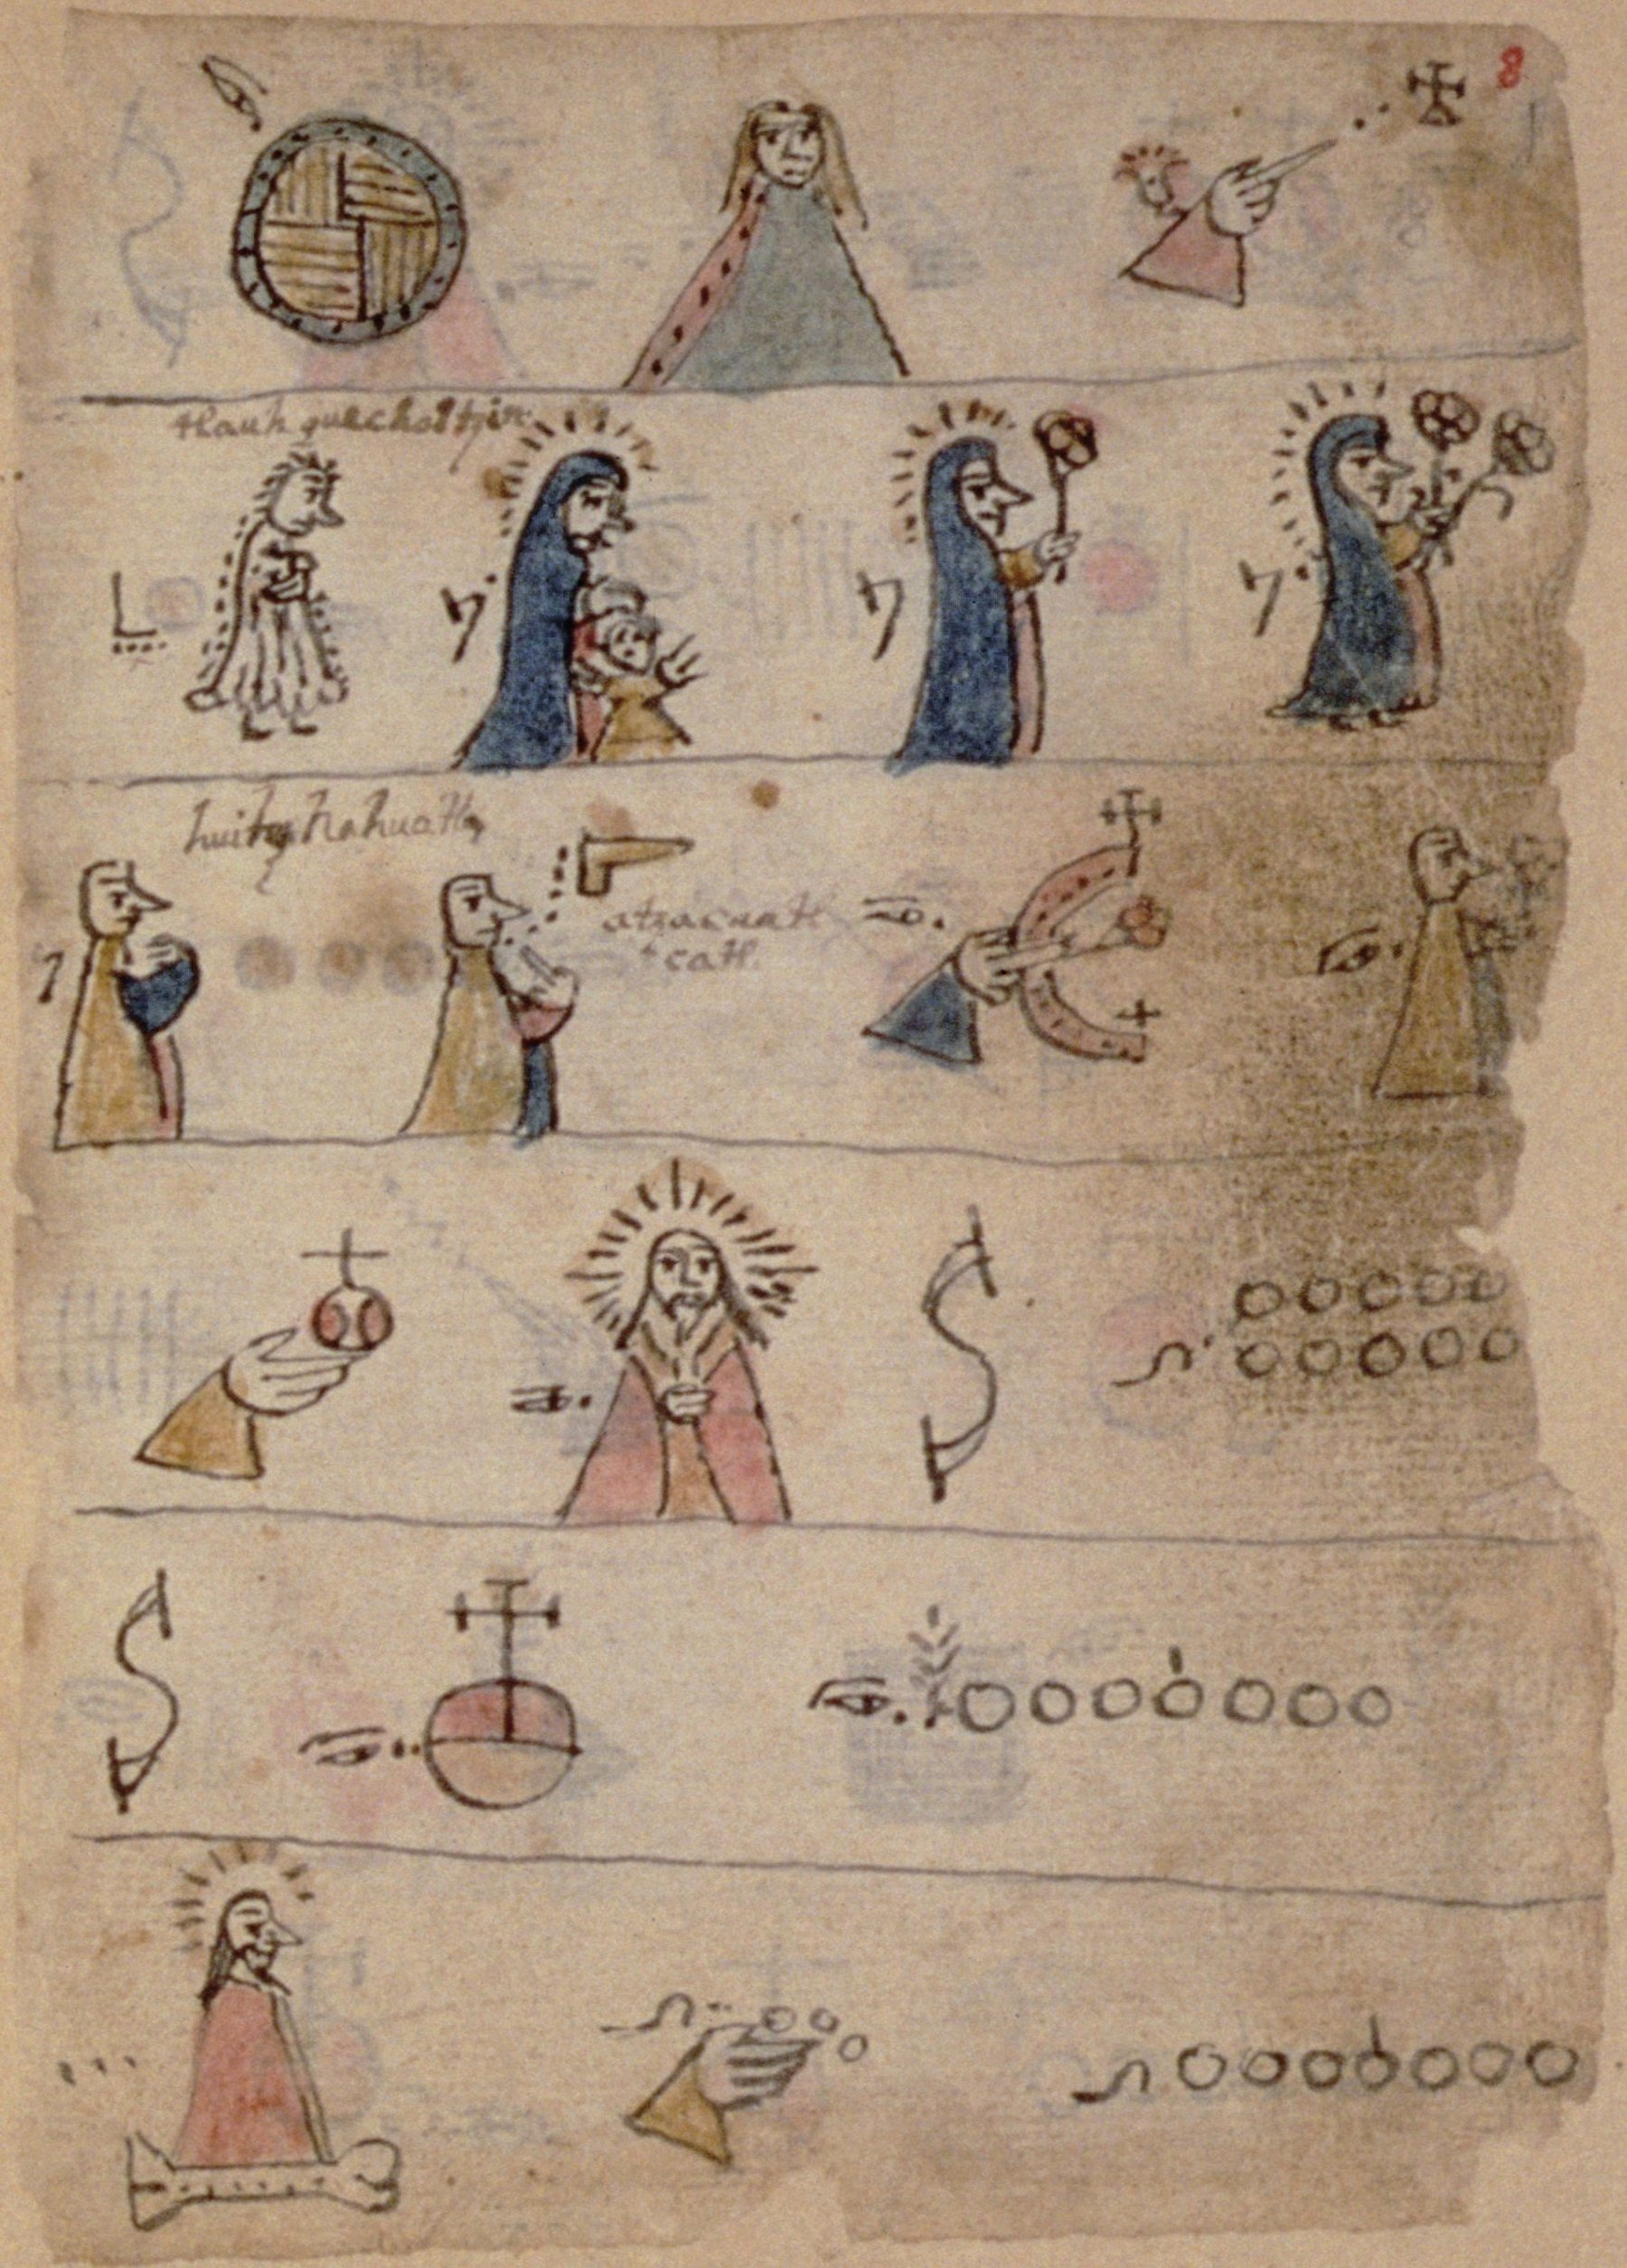 8
tlauhquecholtzin
huitznahuatl
atzacuatl